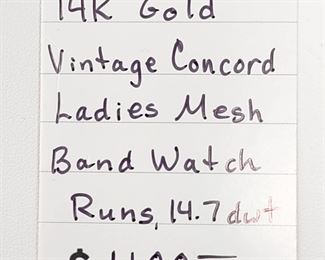 14K Gold
Vintage Concord
Ladies Mesh
Band Watch
Runs, 14.7 dwt
$